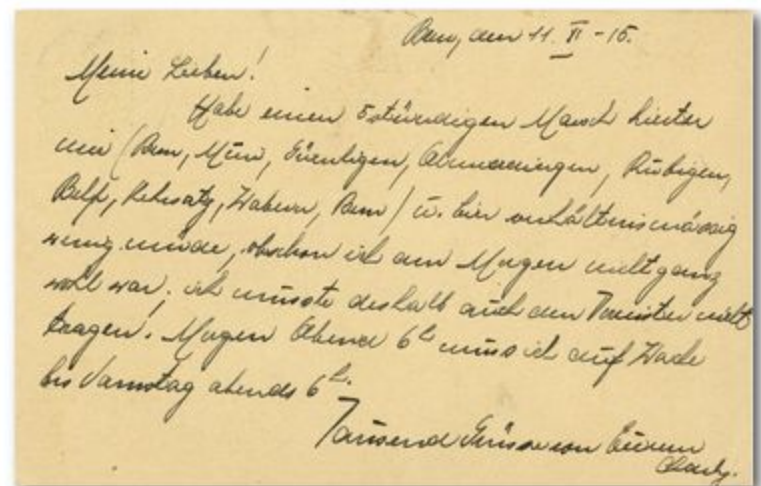 Bern, den 11. VI - 15.
Meine Lieben!
Habe einen 5stündigen Marsch hinter
mir (Bern, Muri, Gümligen, Allmendingen, Rubigen,
Belp, Kehrsatz, Wabern, Bern) u. bin verhältnismässig
wenig müde, obschon ich am Morgen nicht ganz
wohl war; ich musste deshalb auch den Tornister nicht
tragen! Morgen Abend 6h muss ich auf Wache
bis Samstag abends 6h.
Tausend Grüsse von Eurem